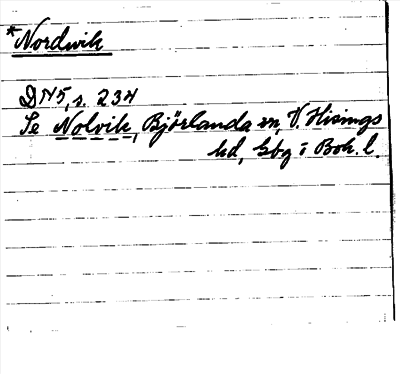 *Nordwik
DN5, s. 234
Se Nolvik, Björlanda sn, V. Hisings
hd, Gbg i Boh. l.